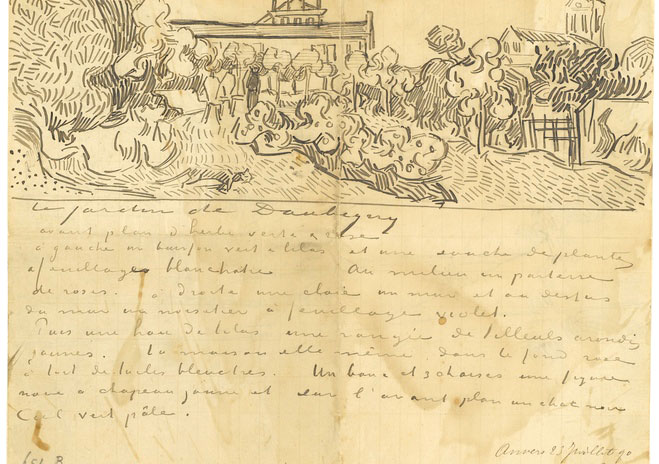 Le jardin de Daubigny
avant plan d'herbe verte & rose
à gauche un buisson vert & lilas et une souche de plantes
à feuillages blanchatre Au milieu un parterre
de roses. à droite une claie un mur et au dessus
du mur un noisetier à feuillage violet.
Puis une haie de lilas une rangée de tilleuls arondis
jaunes. La maison elle même dans le fond rose
à toit de tuiles bleuatres. Un banc et 3 chaises une figure
noire à chapeau jaune et sur l'avant plan un chat noir
Ciel vert pâle.
Auvers 23 Juillet 90